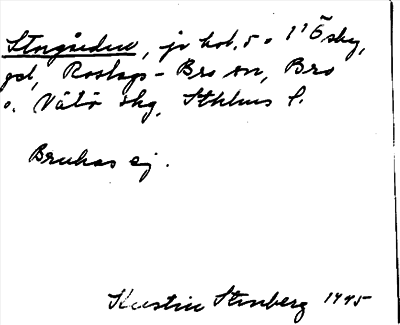 Storgården, jr kol. 5 o 11 Ö sky,
gd, Roslags-Bro sn, Bro
o. Vätö skg, Sthlms l.
Brukas ej.
Kerstin Stenberg 1945